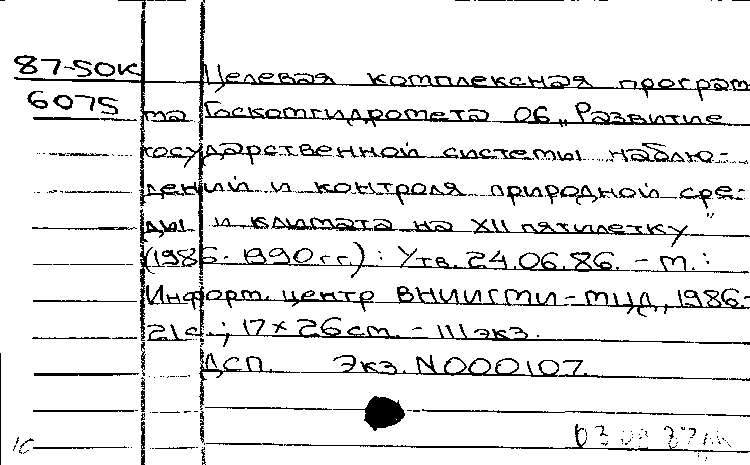 87-50К Целевая комплексная програм
6075 ма Госкомгидромета 06 „Развитие
государственной системы наблю-
дений и контроля природной сре-
ды и климата на XII пятилетку"
(1986-1990 гг.): Утв. 24.06.86. - М.:
Информ. центр ВНИИГМИ-МЦД, 1986-
21с.; 17×26см. - 111 экз.
ДСП. Экз. N000107.
03 87
1С